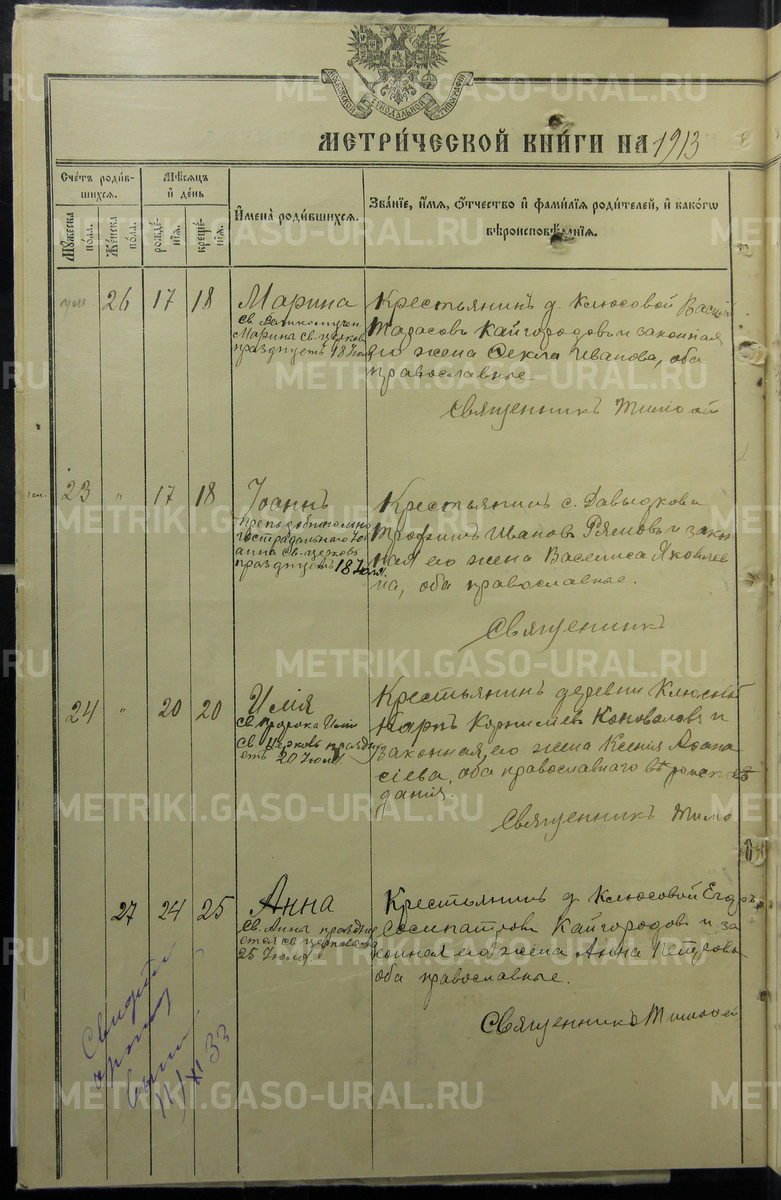 METRIKI.GASO-URAL.RU
МОСКОВСКОЙ СѴНОДАЛЬНОЙ ТИПОГРАФІИ
МЕТРИ́ЧЕСКОЙ КНИ́ГИ НА 1913
Сче́тъ роди́вшихся.
Мꙋ́жеска по́ла.
Же́нска по́ла.
Мѣ́сяцъ и҆ де́нь
рожде́нїѧ.
креще́нїѧ.
И҆мена̀ роди́вшихсѧ.
Зва́нїе, и҆́мѧ, ѻ҆́тчество и҆ фами́лїѧ роди́телей, и҆ како́гѡ
вѣроисповѣ́данїѧ.
26 17 18
Марина
Св. Великомучен.
Марина Св. церковь
празднуетъ 18 Іюля
Крестьянинъ д. Клюсовой Василій
Тарасовъ Кайгородовъ и законная
его жена Ѳекла Иванова, оба
православные
Священникъ
23 " 17 18
Іоаннъ
преподобнаго много
страдальнаго Іо
анна Св. церковь
празднуетъ 18 Іюля.
Крестьянинъ с. Давыдкова
Трофимъ Ивановъ и закон
ная его жена Васелиса Яковлев
на, оба православные.
Священникъ
24 " 20 20
Илія
Св. пророка Иліи
Св. Церковь праздну
етъ 20 Іюля
Крестьянинъ деревни Клюсовой
Карпъ Корнилiевъ Коноваловъ и
законная его жена Ксенія Аѳана
сіева, оба православнаго вѣроисповѣ
данія.
Священникъ
27 24 25
Анна
Св. Анна праздну
ется св церковью
25 Іюля
Крестьянинъ д. Клюсовой Егоръ
Сосипатровъ Кайгородовъ и за
конная его жена Анна Петрова
оба православные.
Священникъ
XI 33